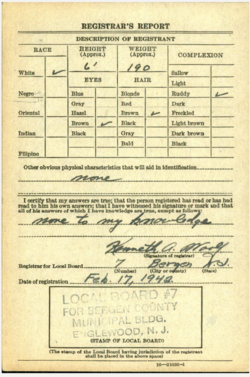 REGISTRAR'S REPORT
DESCRIPTION OF REGISTRANT
RACE HEIGHT (Approx.) WEIGHT (Approx.) COMPLEXION
6' 190
White ✓ EYES HAIR Sallow
Light
Negro Blue Blonde Ruddy ✓
Gray Red Dark
Oriental Hazel Brown ✓ Freckled
Brown ✓ Black Light brown
Indian Black Gray Dark brown
Bald Black
Filipino
Other obvious physical characteristics that will aid in identification
none
I certify that my answers are true; that the person registered has read or has had
read to him his own answers; that I have witnessed his signature or mark and that
all of his answers of which I have knowledge are true, except as follows:
none to my knowledge
Kenneth A.
(Signature of registrar)
Registrar for Local Board 7 Bergen N.J.
(Number) (City or county) (State)
Date of registration Feb. 17, 1942
LOCAL BOARD #7
FOR BERGEN COUNTY
MUNICIPAL BLDG.
ENGLEWOOD, N. J.
(STAMP OF LOCAL BOARD)
(The stamp of the Local Board having jurisdiction of the registrant
shall be placed in the above space)